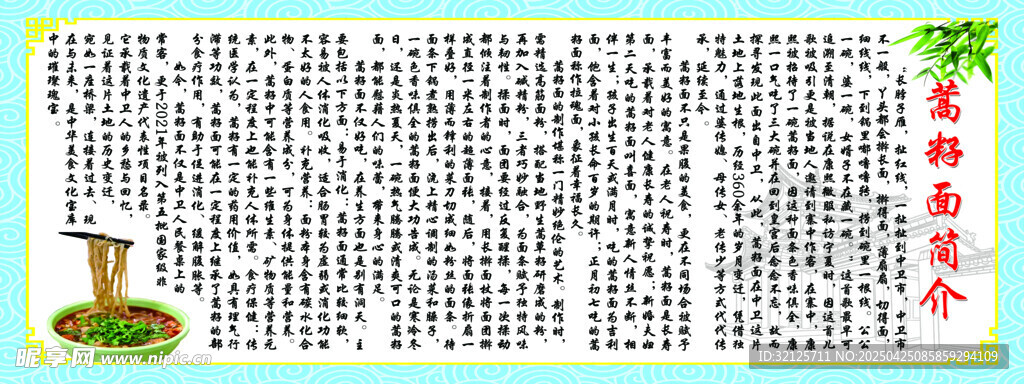 蒿籽面简介
“长脖子雁，扯红线，一扯扯到中卫市，中卫市
不一般，丫头都会擀长面，擀得面，薄扇扇，切得面，
细线线，下到锅里嘟噜噜转，捞到碗里一根线。公公
一碗，婆一碗，女婿子不在藏一碗……”这首歌最早可
追溯至清朝，据说在康熙微服私访宁夏时，因这首儿
歌被吸引更是被当地人邀请到寨中作客，在寨中，康
熙被招待了一碗蒿籽面，因这种面条色香味俱全，康
熙一口气吃了三大碗并在回到皇宫后念念不忘，故而
探寻发现此面出自中卫，从此，蒿籽面在中卫这片
土地上落地生根，历经360余年的岁月变迁，凭借独
特魅力，通过婆传媳、母传女、老传少等方式代代传
承，延续至今。
蒿籽面不只是果腹的美食，更在不同场合被赋予
丰富而美好的寓意。在老人祝寿时，蒿籽面是长寿
面，承载着对老人健康长寿的诚挚祝愿；新婚夫妇
第二天吃的蒿籽面叫喜面，寓意新人情丝不断，相
伴一生；孩子出生百天或满月时，吃的蒿籽面为吉利
面，饱含着对小孩长命百岁的期许；正月初七吃的蒿
籽面称作拉魂面，象征着幸福长久。
蒿籽面的制作堪称一门精妙绝伦的艺术。制作时，
需精选高筋面粉，搭配当地野生蒿草籽研磨成的粉，
再加入碱精粉，三者巧妙融合，为面条赋予独特风味
与韧性。擀面时，面团要经过反复醒揉，每一次揉动
都倾注着制作者的心意，接着，用长擀面杖将面团擀
成直径一米左右的超薄面张，随后，将面张像折扇一
样叠好，用薄而锋利的菜刀切成细如粉丝的面条。待
面条下锅煮熟捞出后，浇上精心调制的汤菜和臊子，
一碗色香味俱全的蒿籽面便大功告成。无论是寒冷冬
日，还是炎热夏天，一碗热气腾腾或清爽可口的蒿籽
面，都能慰藉人们的味蕾，带来身心的满足。
蒿籽面不仅好吃，在养生方面也是别有洞天。主
要包括以下方面：易于消化：蒿籽面通常比较细软，
容易被人体消化吸收，适合肠胃较为虚弱或消化功能
不太好的人食用。营养丰富：面粉本身含有碳水化合
物、蛋白质等营养成分，可为身体提供能量和营养。
此外，蒿籽中可能含有一些维生素、矿物质等营养元
素，在一定程度上也能补充人体所需。食疗保健：传
统医学认为，蒿籽有一定的药用价值，如具有理气行
滞等功效，蒿籽面可能在一定程度上继承了蒿籽的部
分食疗作用，有助于促进消化、缓解腹胀等。
如今，蒿籽面不仅是中卫人民餐桌上的
常客，更于2021年被列入第五批国家级非
物质文化遗产代表性项目名录。
它承载着中卫人的乡愁与回忆，
见证着这片土地的历史变迁，
宛如一座桥梁，连接着过去、现
在与未来，是中华美食文化宝库
中的璀璨瑰宝。
昵享网 www.nipic.cn
ID:32125711 NO:20250425085859294109